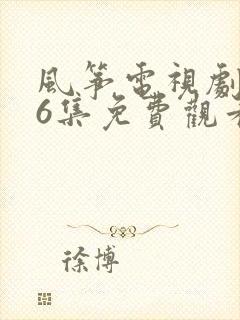 風筝電視劇
6集免費觀看
徐博